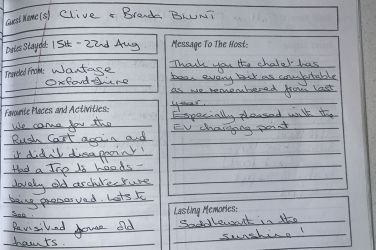 Guest Name(s) Clive & Brenda BLUNT
Dates Stayed: 15th - 22nd Aug
Traveled From: Wantage
Oxfordshire
Favourite Places and Activities:
We came for the
Rush Cart again and
it didn't disappoint!
Had a Trip to Leeds -
lovely old architecture
being preserved. Lots to
see
Revisited some old
haunts.
Message To The Host:
Thank you the chalet has
been every bit as comfortable
as we remembered from last
year.
Especially pleased with the
EV charging point
Lasting Memories:
Saddleworth in the
sunshine!